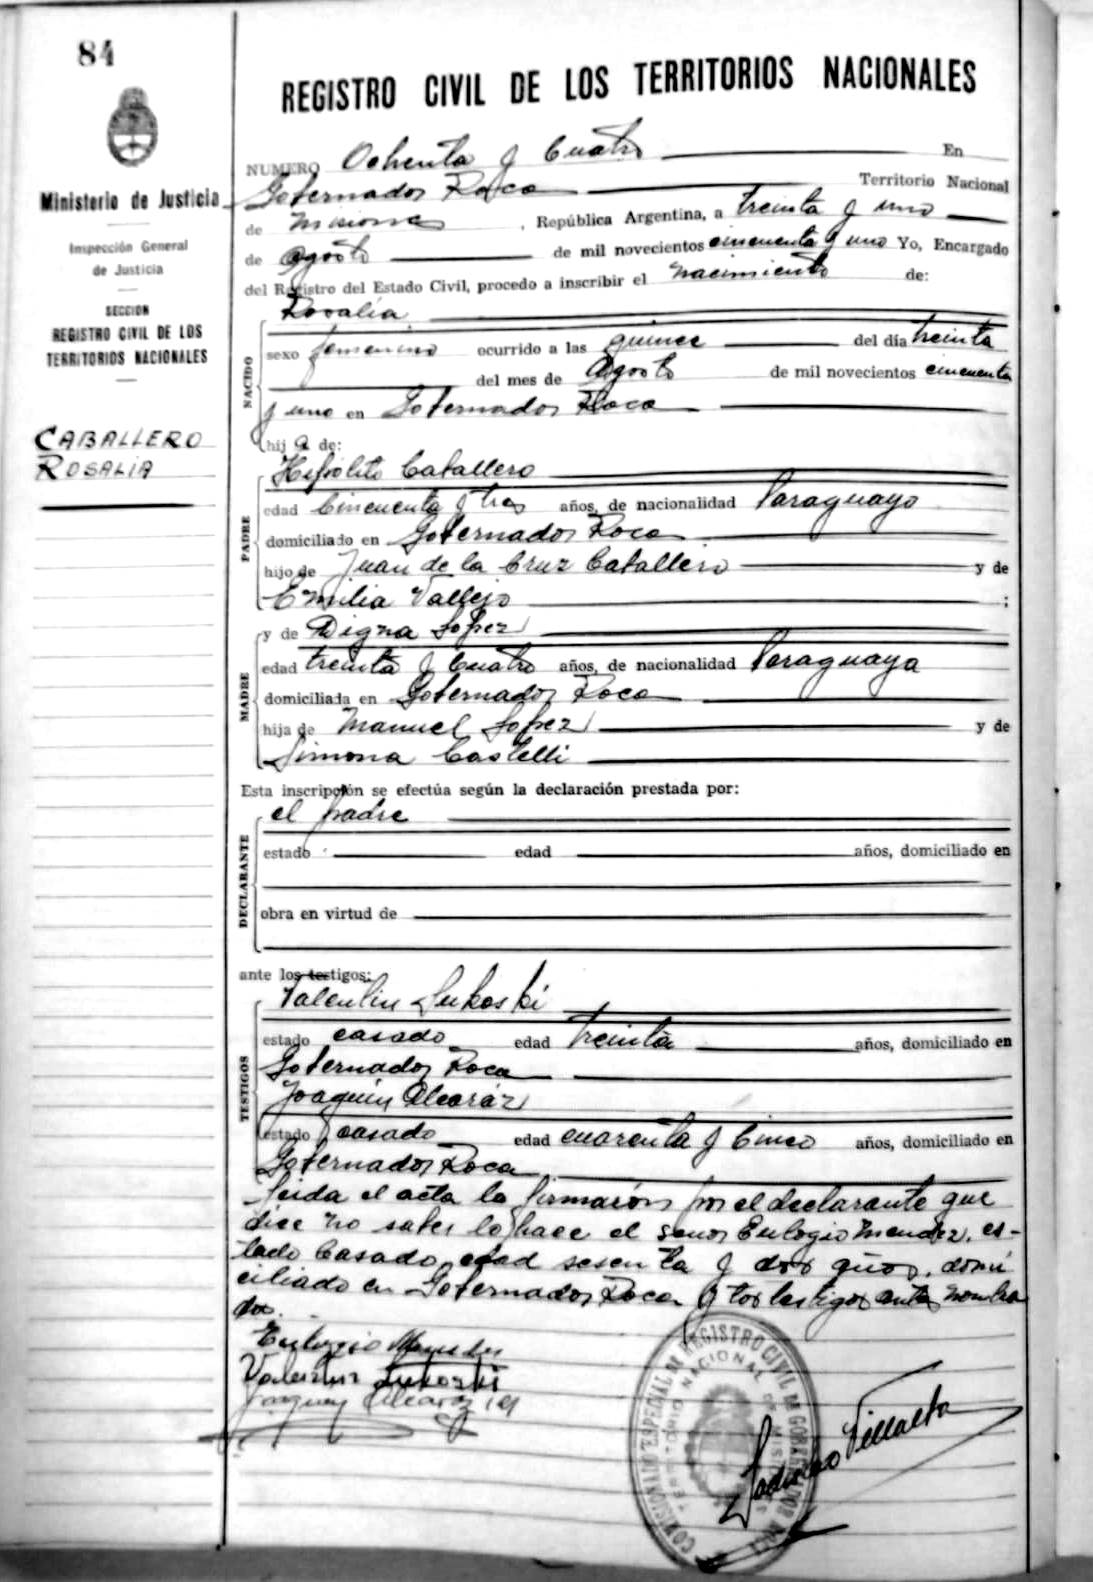 84
REGISTRO CIVIL DE LOS TERRITORIOS NACIONALES
Ministerio de Justicia
Inspección General
de Justicia
SECCION
REGISTRO CIVIL DE LOS
TERRITORIOS NACIONALES
CABALLERO
ROSALIA
NUMERO Ochenta y Cuatro En
Gobernador Roca Territorio Nacional
de Misiones, República Argentina, a treinta y uno
de agosto de mil novecientos cincuenta y uno Yo, Encargado
del Registro del Estado Civil, procedo a inscribir el nacimiento de:
NACIDO
Rosalia
sexo femenino ocurrido a las quince del día treinta
del mes de Agosto de mil novecientos cincuenta
y uno en Gobernador Roca
hij a de:
PADRE
Hipolito Caballero
edad Cincuenta y tres años, de nacionalidad Paraguayo
domiciliado en Gobernador Roca
hijo de Juan de la Cruz Caballero y de
Emilia Vallejo ;
MADRE
y de Digna Lopez
edad treinta y Cuatro años, de nacionalidad Paraguaya
domiciliada en Gobernador Roca
hija de Manuel Lopez y de
Simona Castelli
Esta inscripción se efectúa según la declaración prestada por:
DECLARANTE
el padre
estado edad años, domiciliado en
obra en virtud de
ante los testigos:
TESTIGOS
Valentin Lukoski
estado casado edad treinta años, domiciliado en
Gobernador Roca
Joaquin Alcaráz
estado casado edad cuarenta y Cinco años, domiciliado en
Gobernador Roca
Leida el acta la firmarón por el declarante que
dice no saber lo hace el señor Eulogio Mendez, es-
tado Casado, edad sesenta y dos años, domi
ciliado en Gobernador Roca y los testigos antes nombra
dos.
Eulogio Mendez
Valentin Lukoski
Joaquin Alcaraz
COMISION ESPECIAL DE REGISTRO CIVIL DE GOBERNADOR ROCA
TERRITORIO NACIONAL DE MISIONES
Ladislao Villalta